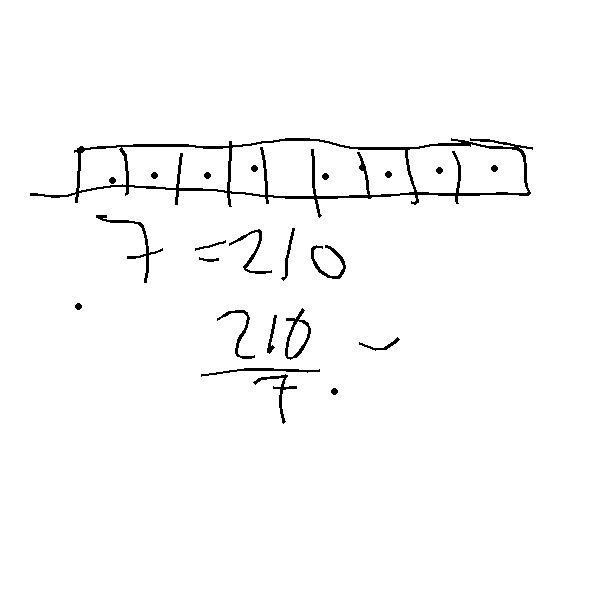 7 = 210
210
7